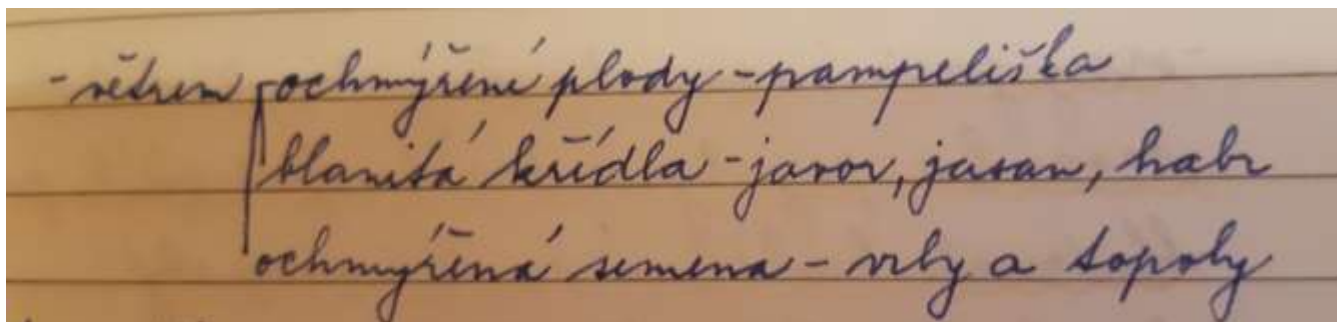 - větrem ochmýřené plody - pampeliška
blanitá křídla - javor, jasan, habr
ochmýřená semena - vrby a topoly